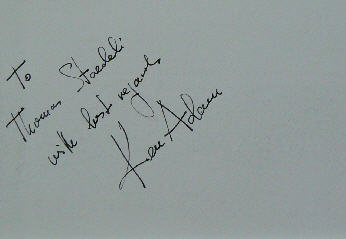 To
Thomas Staedeli
with best regards
Ken Adam